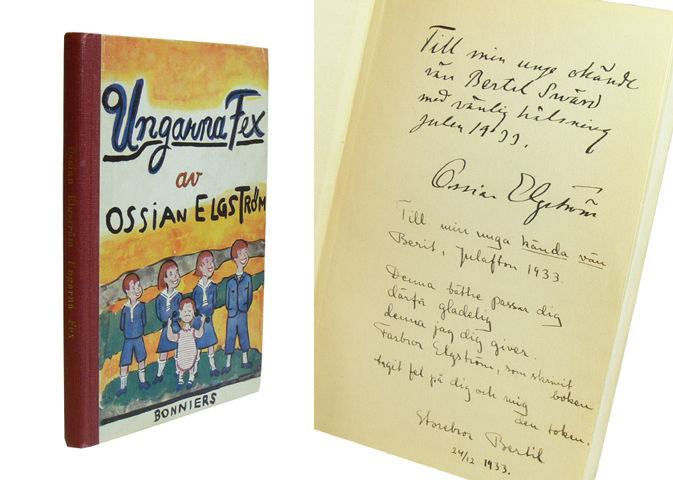 Ossian Elgström Ungarna Fex
Ungarna Fex
av
OSSIAN ELGSTRÖM
BONNIERS
Till min unge okände
vän Bertil Swärd
med vänlig hälsning
julen 1933.
Ossian Elgström
Till min unga kända vän
Berit, Julafton 1933.
Denna bättre passar dig
därför gladelig
denna jag dig giver.
Farbror Elgström, som skrivit boken
tagit fel på dig och mig den token.
Storebror Bertil
24/12 1933.